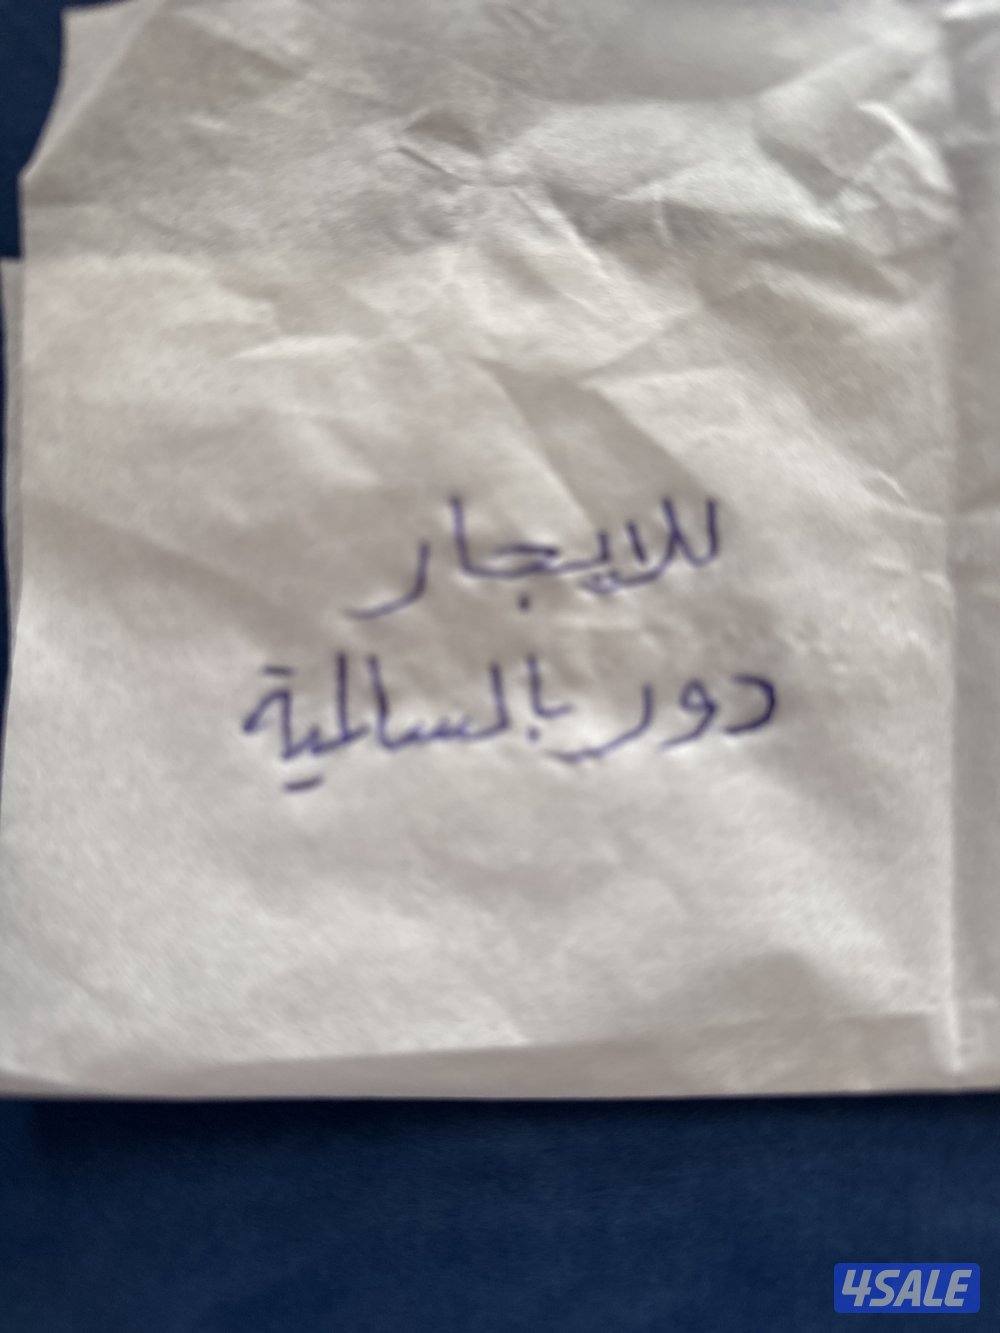 للايجار
دور بالسالمية
4SALE